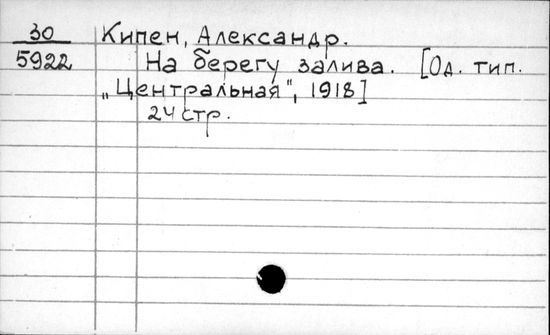 30 Кипен, Александр.
5922 На берегу залива. [Од. тип.
„Центральная", 1918]
24 стр.